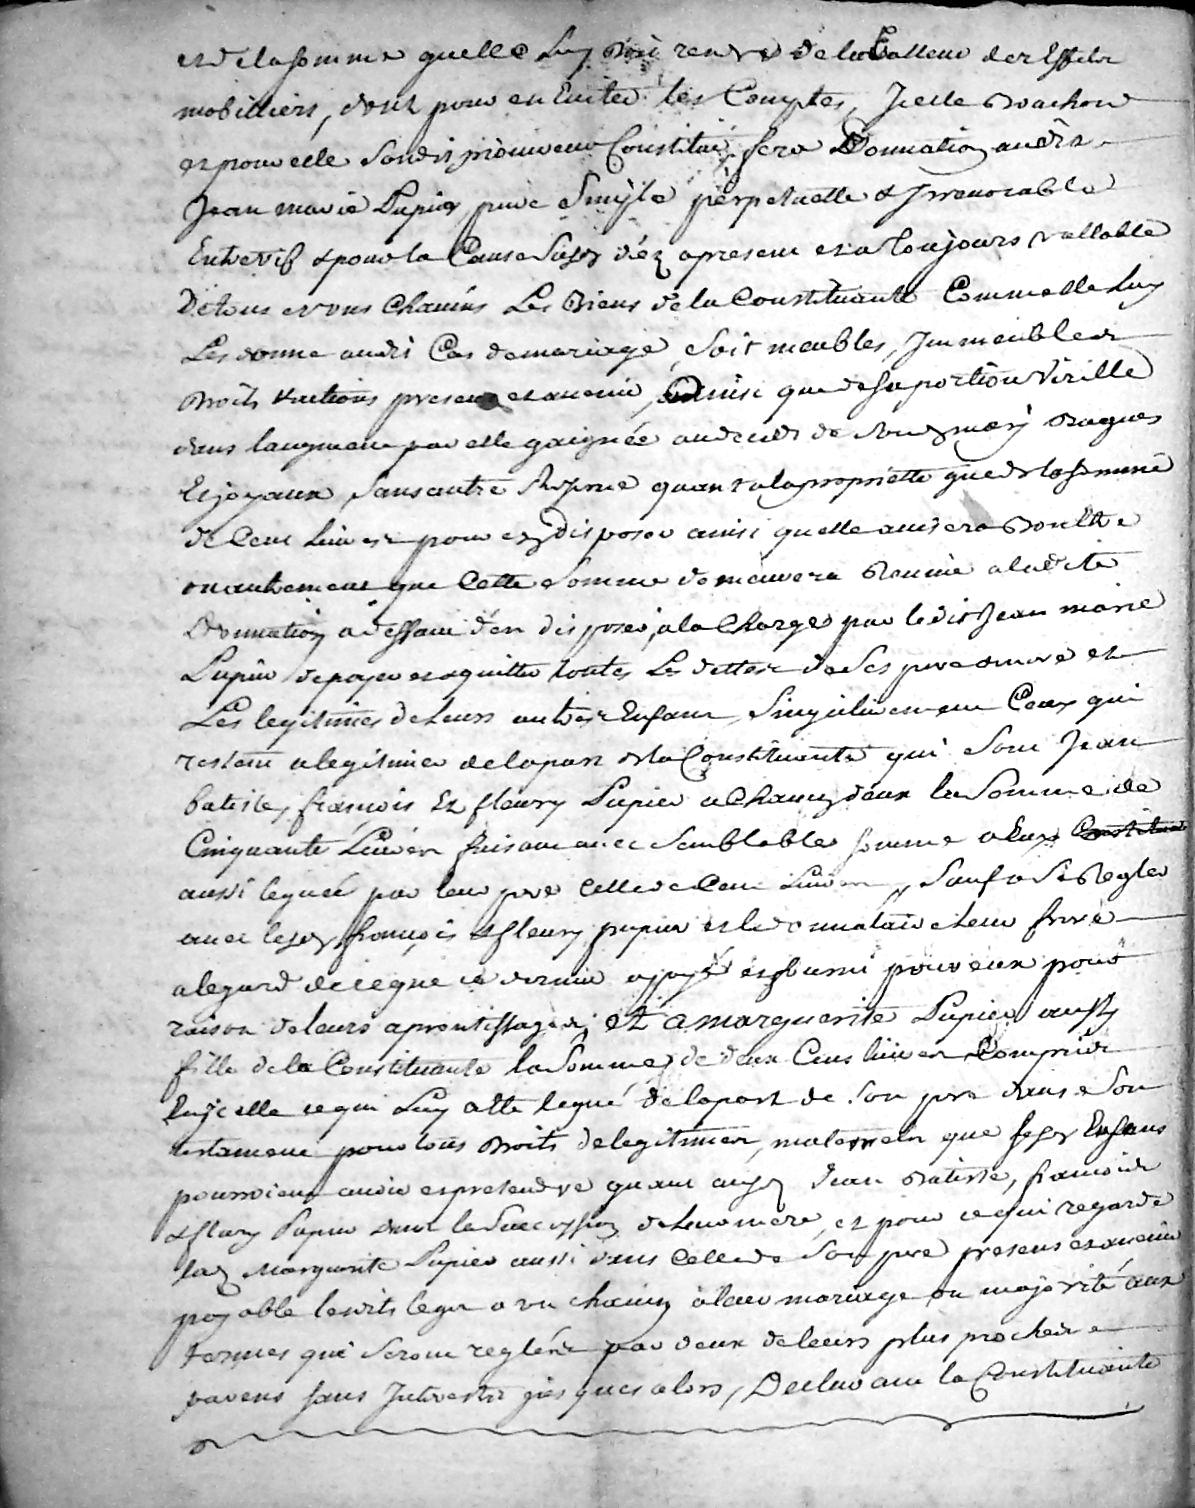 et de la somme quelle luy doit rendre de la Valleur des Effets
mobilliers, dont pour en Eviter les Comptes, Icelle Brachon
et pour elle sondit procureur Constitué fera Donnation audit
Jean marie Pupier pure simple perpetuelle & Irrevocable
Entre vif & pour la Cause susd dez apresent et a toujours vallable
De tous et uns chacuns Les Biens de la Constituante Comme elle luy
Les donne audit Cas de mariage, soit meubles, Immeubles
droits & actions presens et avenir, ainsi que de sa portion Virille
dans laugment par elle gaignée au deceds de son d mary Bagues
Et joyaux, sans autre reserve quant a la propriette que de la somme
de Cent livres pour en disposer ainsi quelle avisera voulant
ou autrement que Cette somme demeurera Reunie a ladite
Donnation a deffaut d'en disposer, a la Charge par ledit Jean marie
Pupier de payer et aquitter toutes Les dettes de ses pere & mere et
Les legitimes de Leurs autres Enfans, Singulierement Ceux qui
restent a legitimer de la part de la Constituante qui sont Jean
batiste, francois Et fleury Pupier a Chacun deux la somme de
Cinquante Livres faisant avec semblable somme a Eux
aussi leguée par leur pere Celle de Cent Livres, sauf a se Regler
avec lesd francois & fleury pupier et le donnataire Leur frere
a legard de ce que ce dernier a payé et fourni pour eux pour
raison de leurs aprentissages; et a marguerite Pupier aussy
fille de la Constituante la somme de deux Cens livres Comprise
En jcelle ce qui luy a ete legué de la part de son pere dans son
testament pour tous droits de legitimes, maternels que sesd Enfans
pourroient avoir et pretendre quant auxd Jean Batiste, francois
& fleury Pupier dans la Succession de Leur mere, et pour ce qui regarde
lad Marguerite Pupier aussi dans Celle de son pere presens et avenir
payable lesdits legs a un chacun a leur mariage ou majorité aux
termes qui seront reglés par deux de leurs plus proches
parens sans Interests jusques alors, Declarant la Constituante